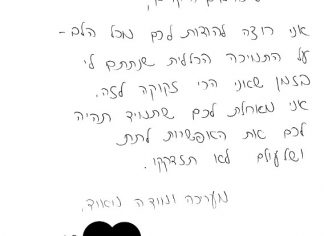 אני רוצה להודות לכם מכל הלב -
על התמיכה הכללית שנתתם לי
בזמן שאני הכי זקוקה לזה.
אני מאחלת לכם שתמיד תהיה
לכם את האפשרות לתת
ושלעולם לא תזדקקו.
מעריכה ומודה מאוד.